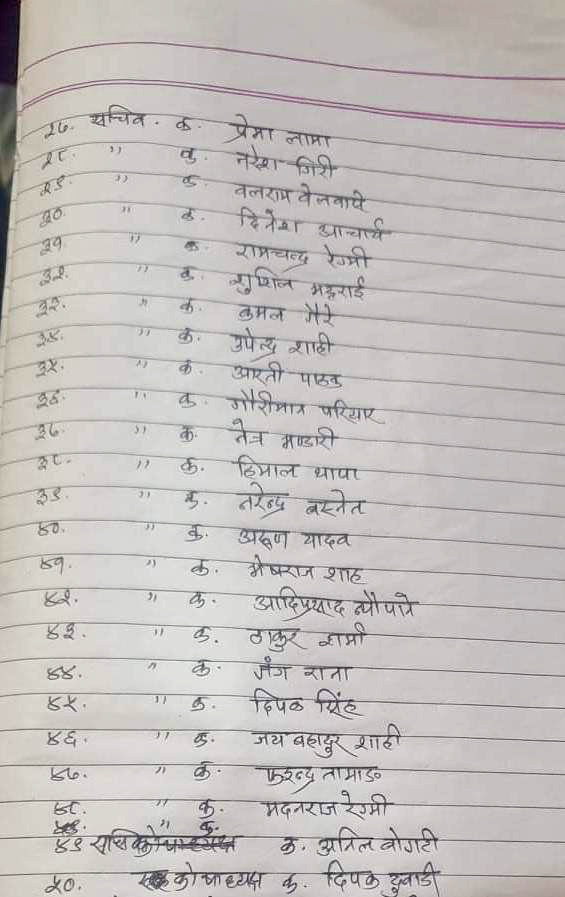 २७. सचिव. क. प्रेमा लामा
२८. " क. नरेश गिरी
२९. " क. बलराम वेलवासे
३०. " क. दिनेश आचार्य
३१. " क. रामचन्द्र रेग्मी
३२. " क. शुशिल भट्टराई
३३. " क. कमल गैरे
३४. " क. उपेन्द्र शाही
३५. " क. आरती पाठक
३६. " क. गौरीमान परियार
३७. " क. नेत्र भण्डारी
३८. " क. हिमाल थापा
३९. " क. नरेन्द्र बस्नेत
४०. " क. अरुण यादव
४१. " क. मेघराज शाह
४२. " क. आदिप्रसाद न्यौपाने
४३. " क. ठाकुर शर्मा
४४. " क. जंग राना
४५. " क. दिपक सिंह
४६. " क. जय बहादुर शाही
४७. " क. तामाङ
४८. " क. मदनराज रेग्मी
४९ क. अनिल बोगटी
५०. कोषाध्यक्ष क. दिपक दुवाडी